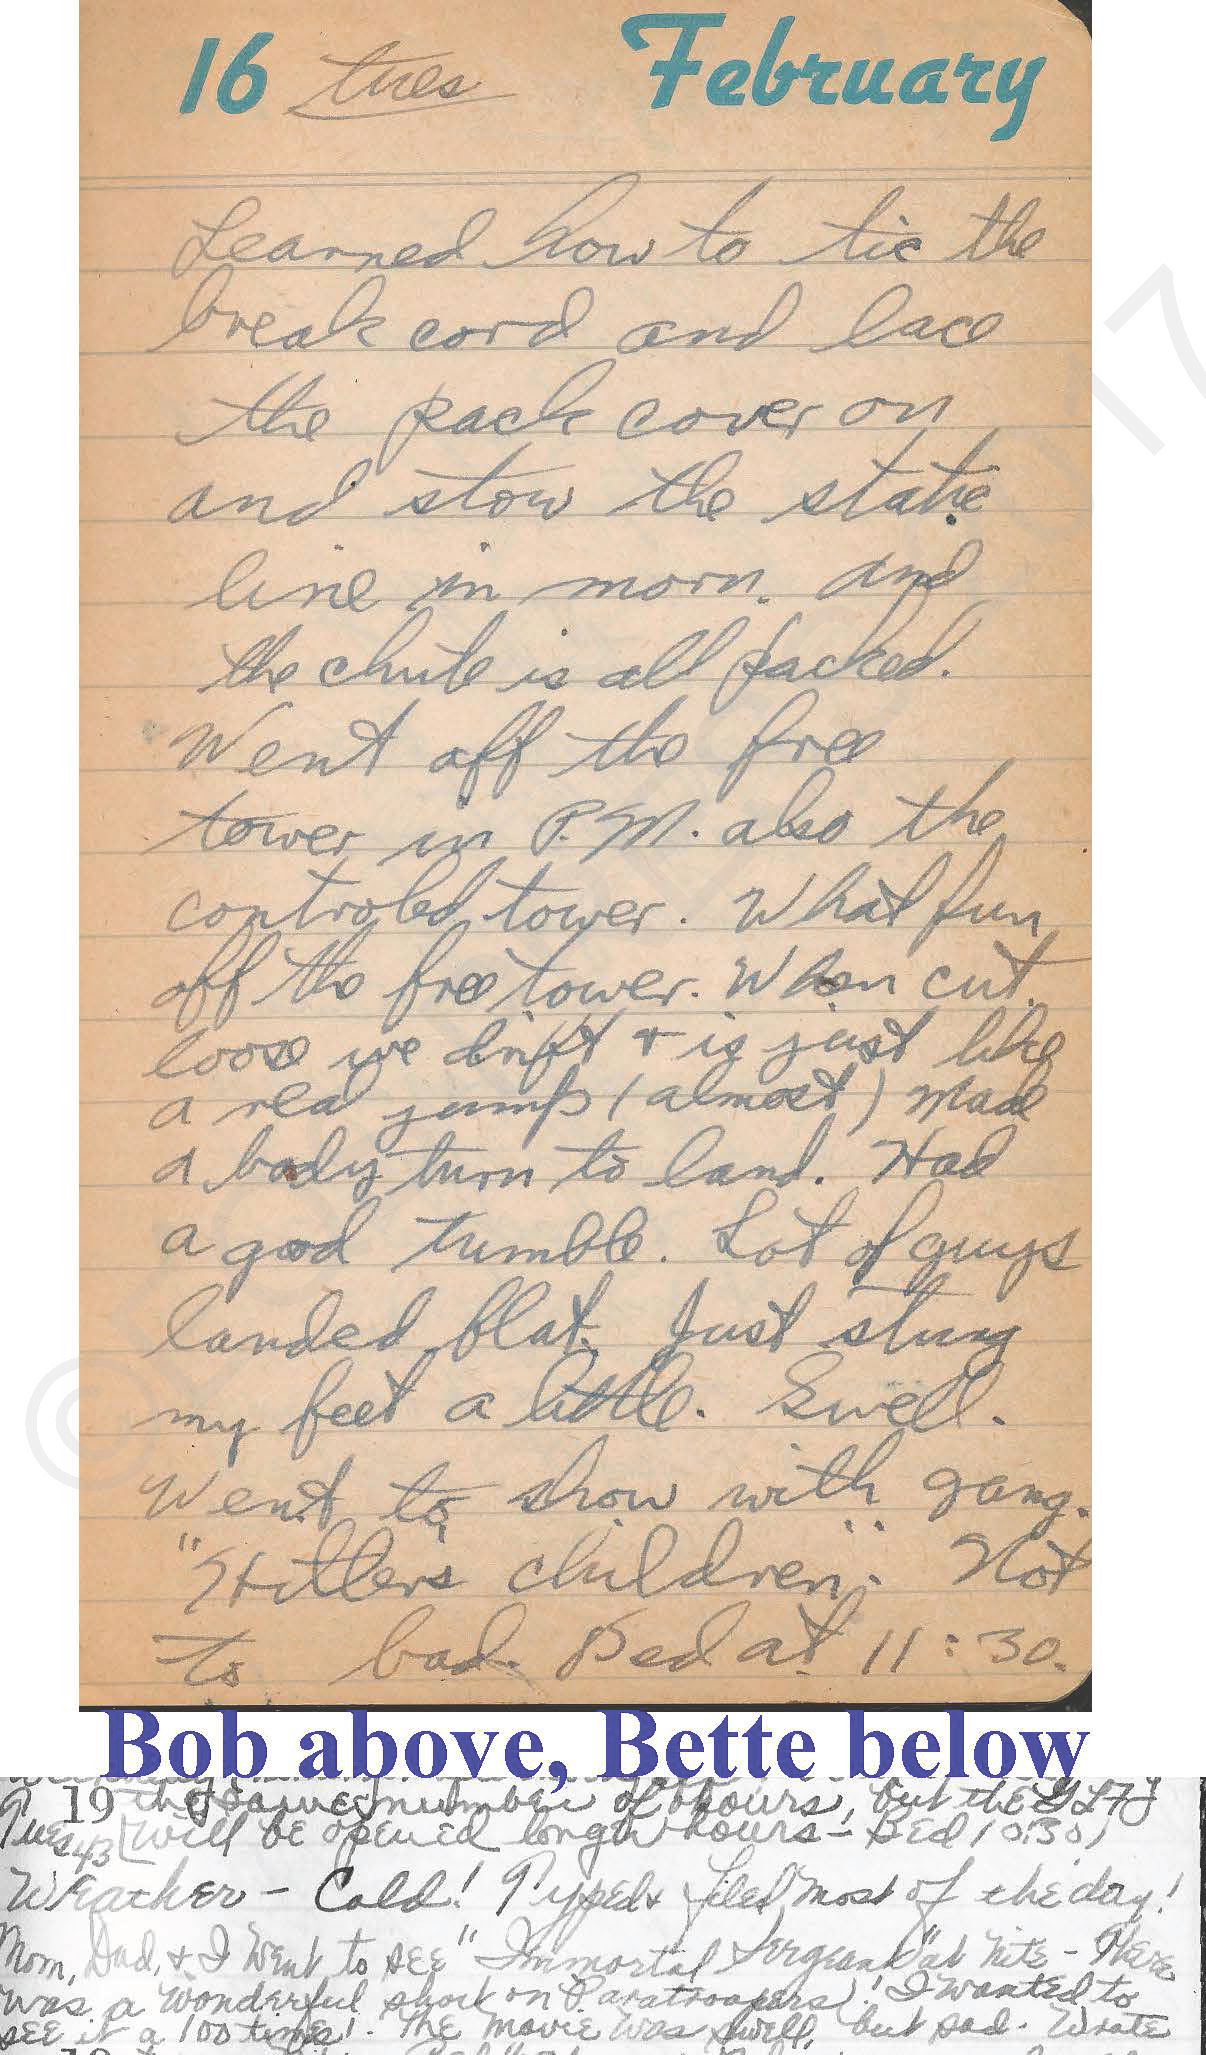 16 tues February
Learned how to tie the
break cord and lace
the pack cover on
and stow the static
line in morn. and
the chute is all packed.
Went off the free
tower in P.M. also the
controled tower. What fun
off the free tower. When cut
loose we drift & is just like
a real jump (almost) Made
a body turn to land. Had
a good tumble. Lot of guys
landed flat. Just stung
my feet a little. Swell.
Went to show with gang.
"Hitlers children". Not
to bad. Bed at 11:30.
Bob above, Bette below
19 the same number of hours, but the
Tues 43 will be opened longer hours - Bed 10:30,
Weather - Cold! Typed & filed most of the day!
Mom, Dad, & I went to see "Immortal Sergeant" at nite - There
was a wonderful short on Paratroopers! I wanted to
see it a 100 times! The movie was swell, but sad. Wrote
19